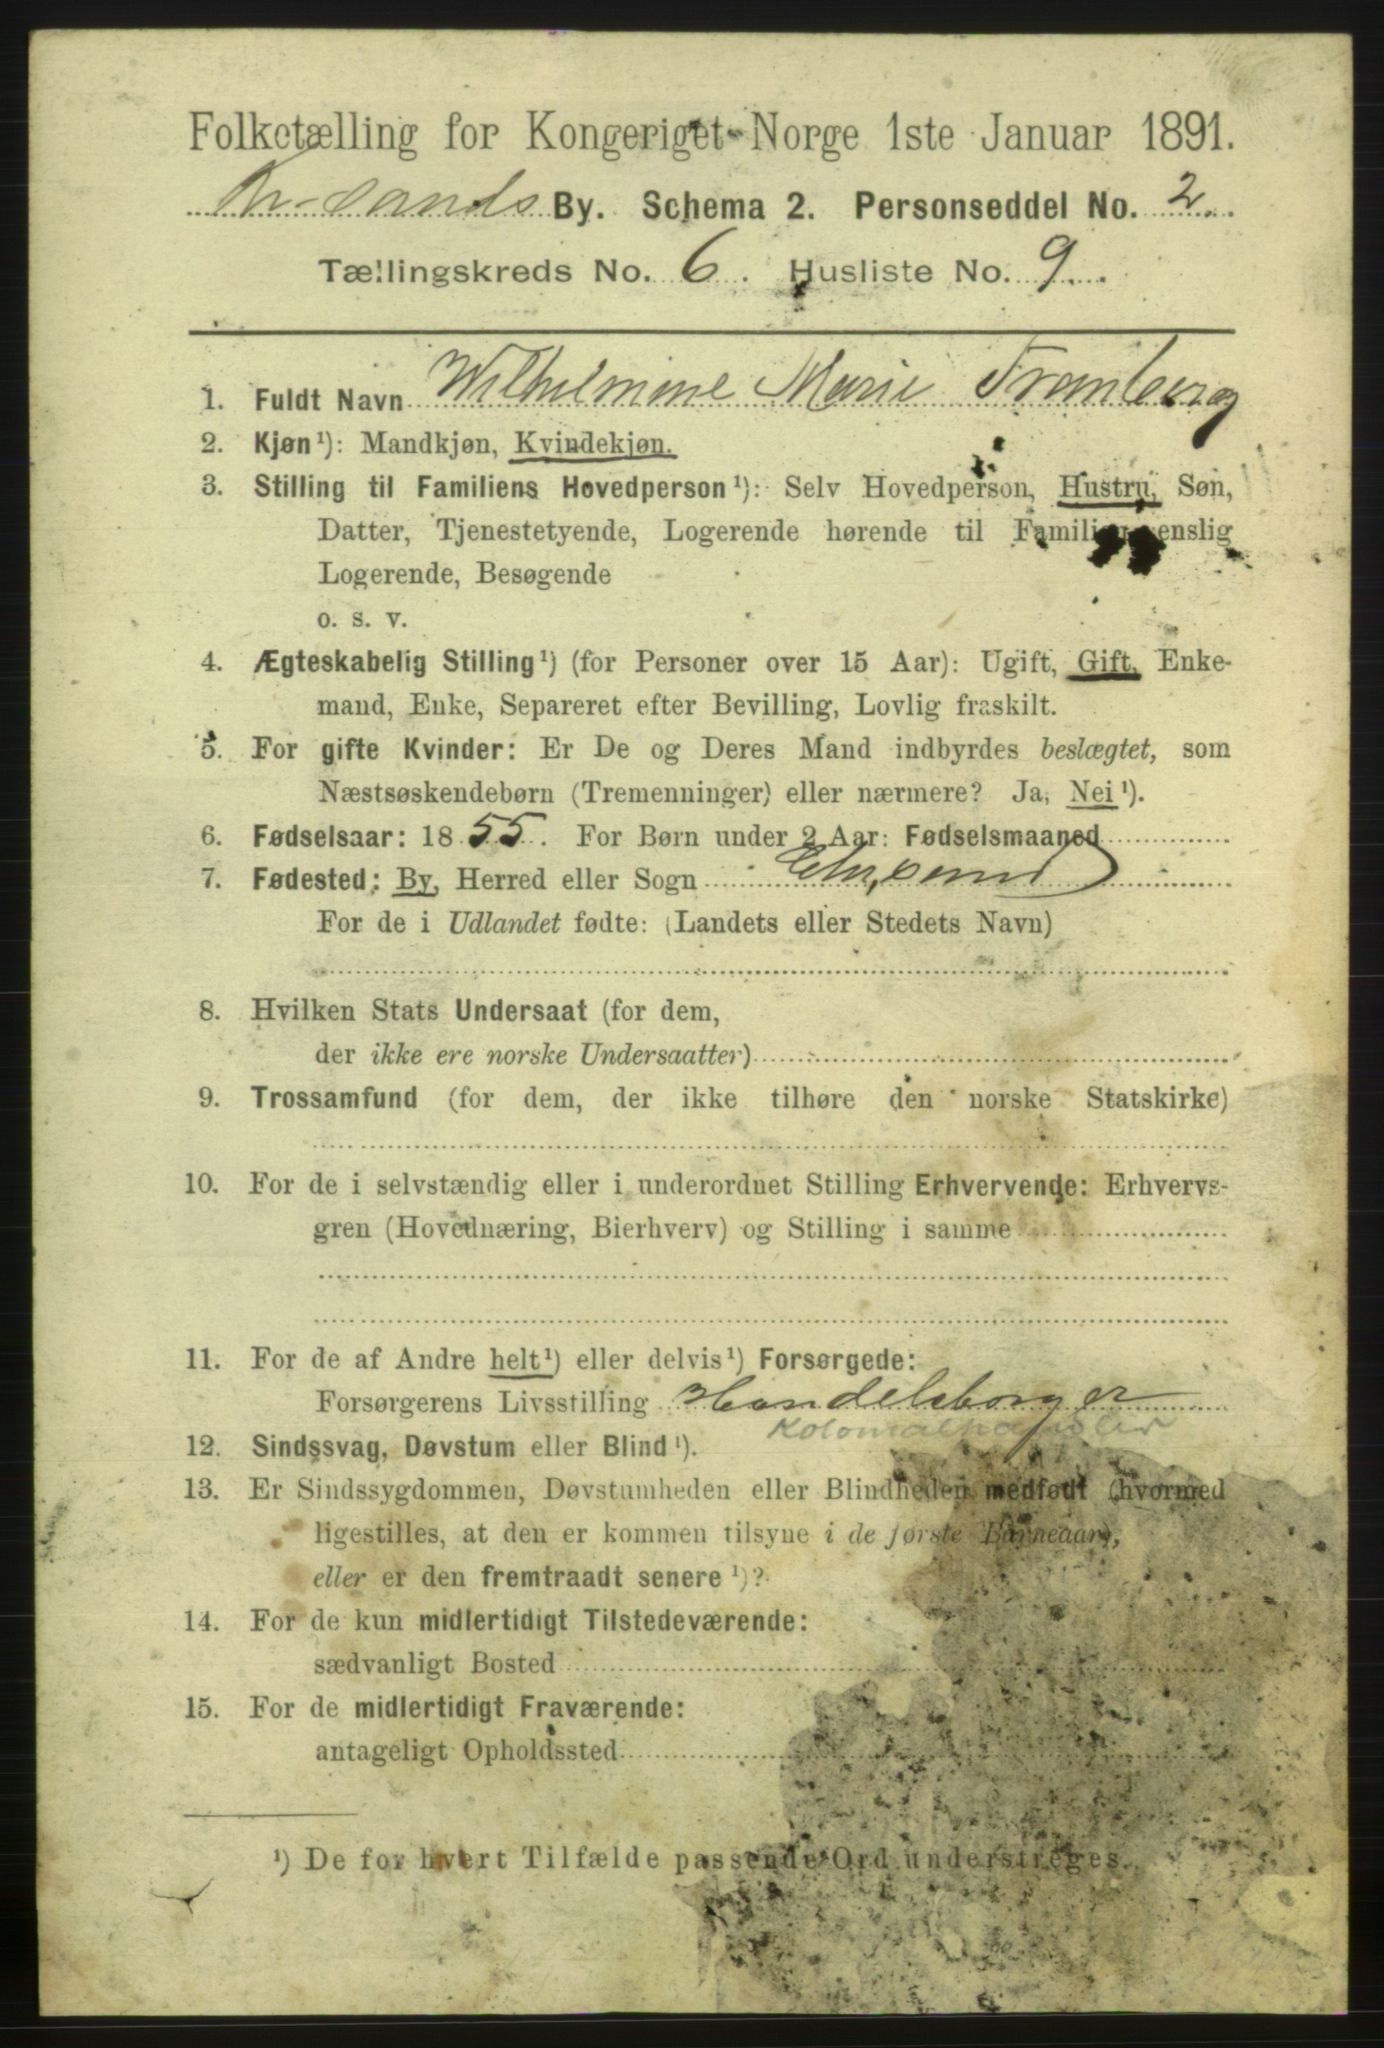 Folketælling for Kongeriget Norge 1ste Januar 1891.
Kr-sands By. Schema 2. Personseddel No. 2.
Tællingskreds No. 6. Husliste No. 9.
1. Fuldt Navn Wilhelmine Marie Tranberg
2. Kjøn¹): Mandkjøn, Kvindekjøn.
3. Stilling til Familiens Hovedperson¹): Selv Hovedperson, Hustru, Søn,
Datter, Tjenestetyende, Logerende hørende til Familien, enslig
Logerende, Besøgende
o. s. v.
4. Ægteskabelig Stilling¹) (for Personer over 15 Aar): Ugift, Gift, Enke-
mand, Enke, Separeret efter Bevilling, Lovlig fraskilt.
5. For gifte Kvinder: Er De og Deres Mand indbyrdes beslægtet, som
Næstsøskendebørn (Tremenninger) eller nærmere? Ja, Nei¹).
6. Fødselsaar: 1855. For Børn under 2 Aar: Fødselsmaaned
7. Fødested: By, Herred eller Sogn Chr,sand
For de i Udlandet fødte: (Landets eller Stedets Navn)
8. Hvilken Stats Undersaat (for dem,
der ikke ere norske Undersaatter)
9. Trossamfund (for dem, der ikke tilhøre den norske Statskirke)
10. For de i selvstændig eller i underordnet Stilling Erhvervende: Erhvervs-
gren (Hovednæring, Bierhverv) og Stilling i samme
11. For de af Andre helt¹) eller delvis¹) Forsørgede:
Forsørgerens Livsstilling Handelsborger
Kolonialhandler
12. Sindssvag, Døvstum eller Blind¹).
13. Er Sindssygdommen, Døvstumheden eller Blindheden medfødt (hvormed
ligestilles, at den er kommen tilsyne i de første Barneaar),
eller er den fremtraadt senere¹)?
14. For de kun midlertidigt Tilstedeværende:
sædvanligt Bosted
15. For de midlertidigt Fraværende:
antageligt Opholdssted
¹) De for hvert Tilfælde passende Ord understreges.